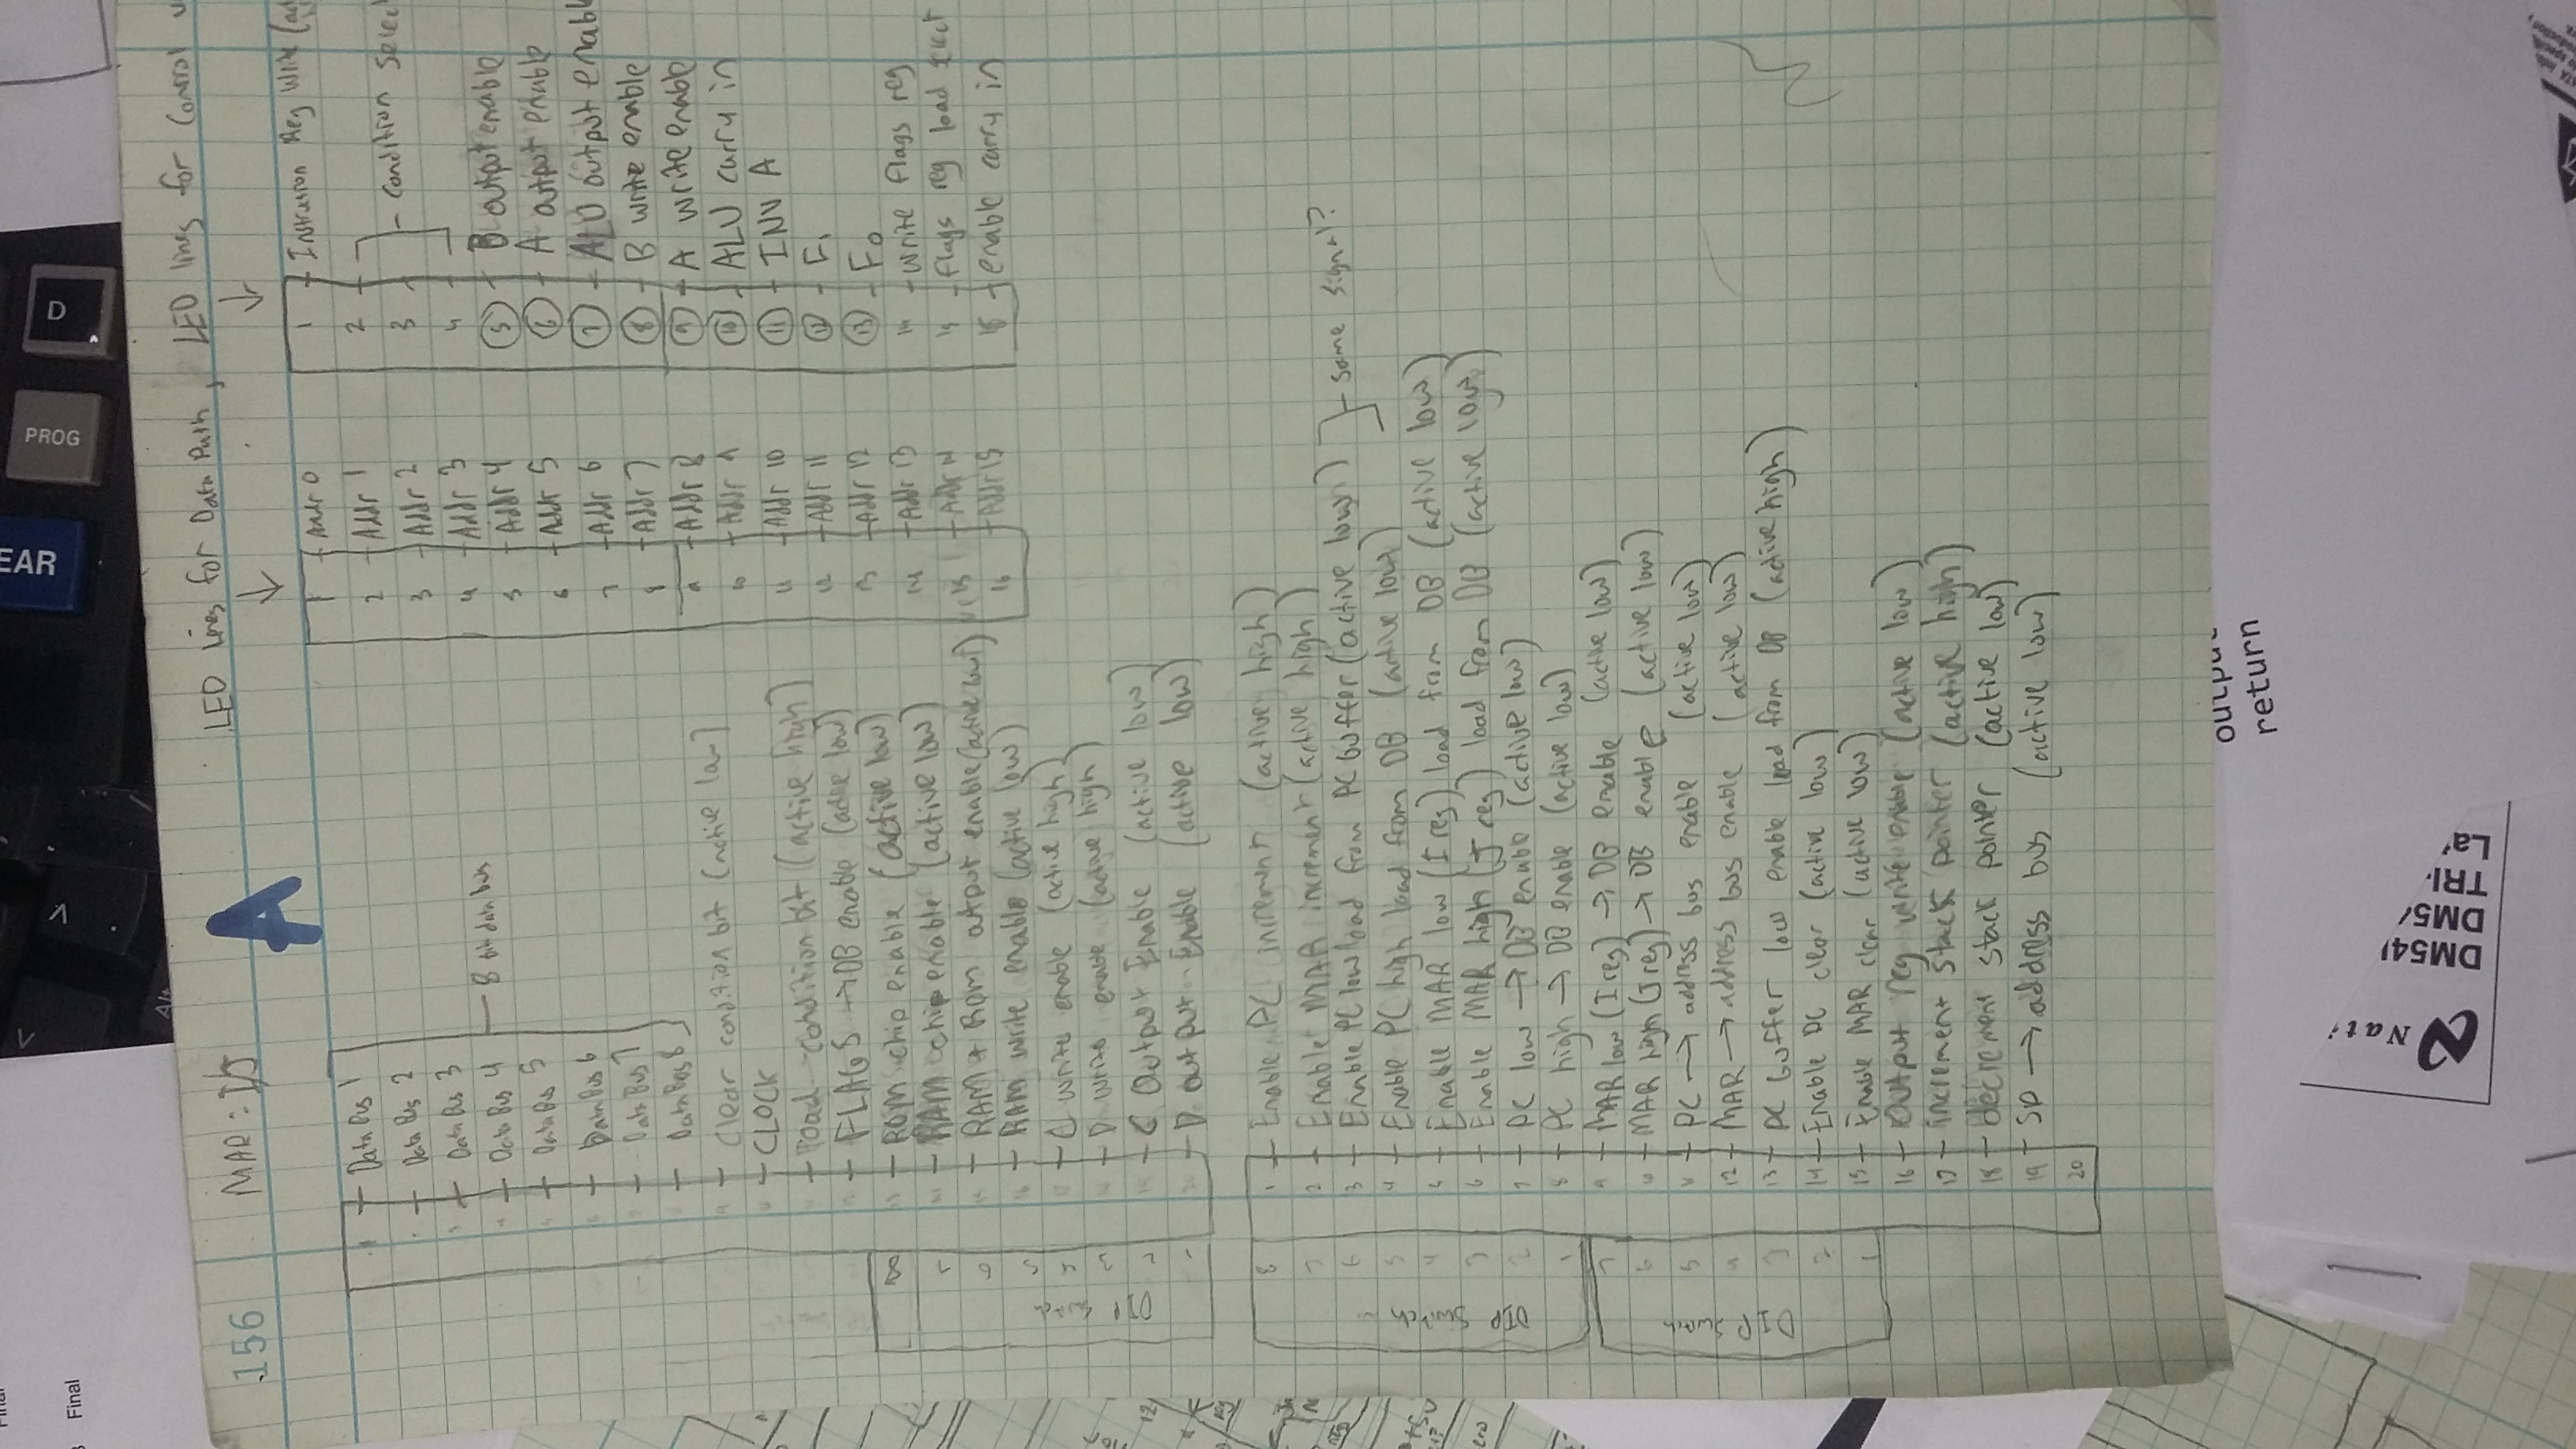 Final
Final
EAR
PROG
D
Alt
156
MAR = I/J
A
LED lines for Data Path, LED lines for Control
1 Data Bus 1
Data Bus 2
Data Bus 3
Data Bus 4
Data Bus 5
Data Bus 6
Data Bus 7
Data Bus 8
8 bit data bus
Clear condition bit (active low)
CLOCK
load condition bit (active high)
FLAGS → DB enable (active low)
ROM chip enable (active low)
RAM chip enable (active low)
RAM + ROM output enable (active low)
RAM write enable (active low)
C write enable (active high)
D write enable (active high)
C Output Enable (active low)
D output Enable (active low)
DIP Switch
8
7
6
5
4
3
2
1
1 Addr 0
2 Addr 1
3 Addr 2
4 Addr 3
5 Addr 4
6 Addr 5
7 Addr 6
8 Addr 7
9 Addr 8
10 Addr 9
11 Addr 10
12 Addr 11
13 Addr 12
14 Addr 13
15 Addr 14
16 Addr 15
1 Instruction Reg Write
2
3
4
condition select
5 B output enable
6 A output enable
7 ALU output enabl
8 B write enable
9 A write enable
10 ALU carry in
11 INV A
12 F1
13 F0
14 write flags reg
15 flags reg load
16 enable carry in
1 Enable PC increment (active high)
2 Enable MAR increment (active high)
3 Enable PC low load from PC buffer (active low)
4 Enable PC high load from DB (active low)
same signal?
5 Enable MAR low (I reg) load from DB (active low)
6 Enable MAR high (J reg) load from DB (active low)
7 PC low → DB enable (active low)
8 PC high → DB enable (active low)
9 MAR low (I reg) → DB enable (active low)
10 MAR high (J reg) → DB enable (active low)
11 PC → address bus enable (active low)
12 MAR → address bus enable (active low)
13 PC buffer low enable load from DB (active high)
14 Enable PC clear (active low)
15 Enable MAR clear (active low)
16 Output reg write enable (active low)
17 increment stack pointer (active high)
18 decrement stack pointer (active low)
19 SP → address bus (active low)
20
DIP Switch
8
7
6
5
4
3
2
1
DIP Switch
7
6
5
4
3
2
1
output
return
Nati
DM54
DM5
TRI-
La